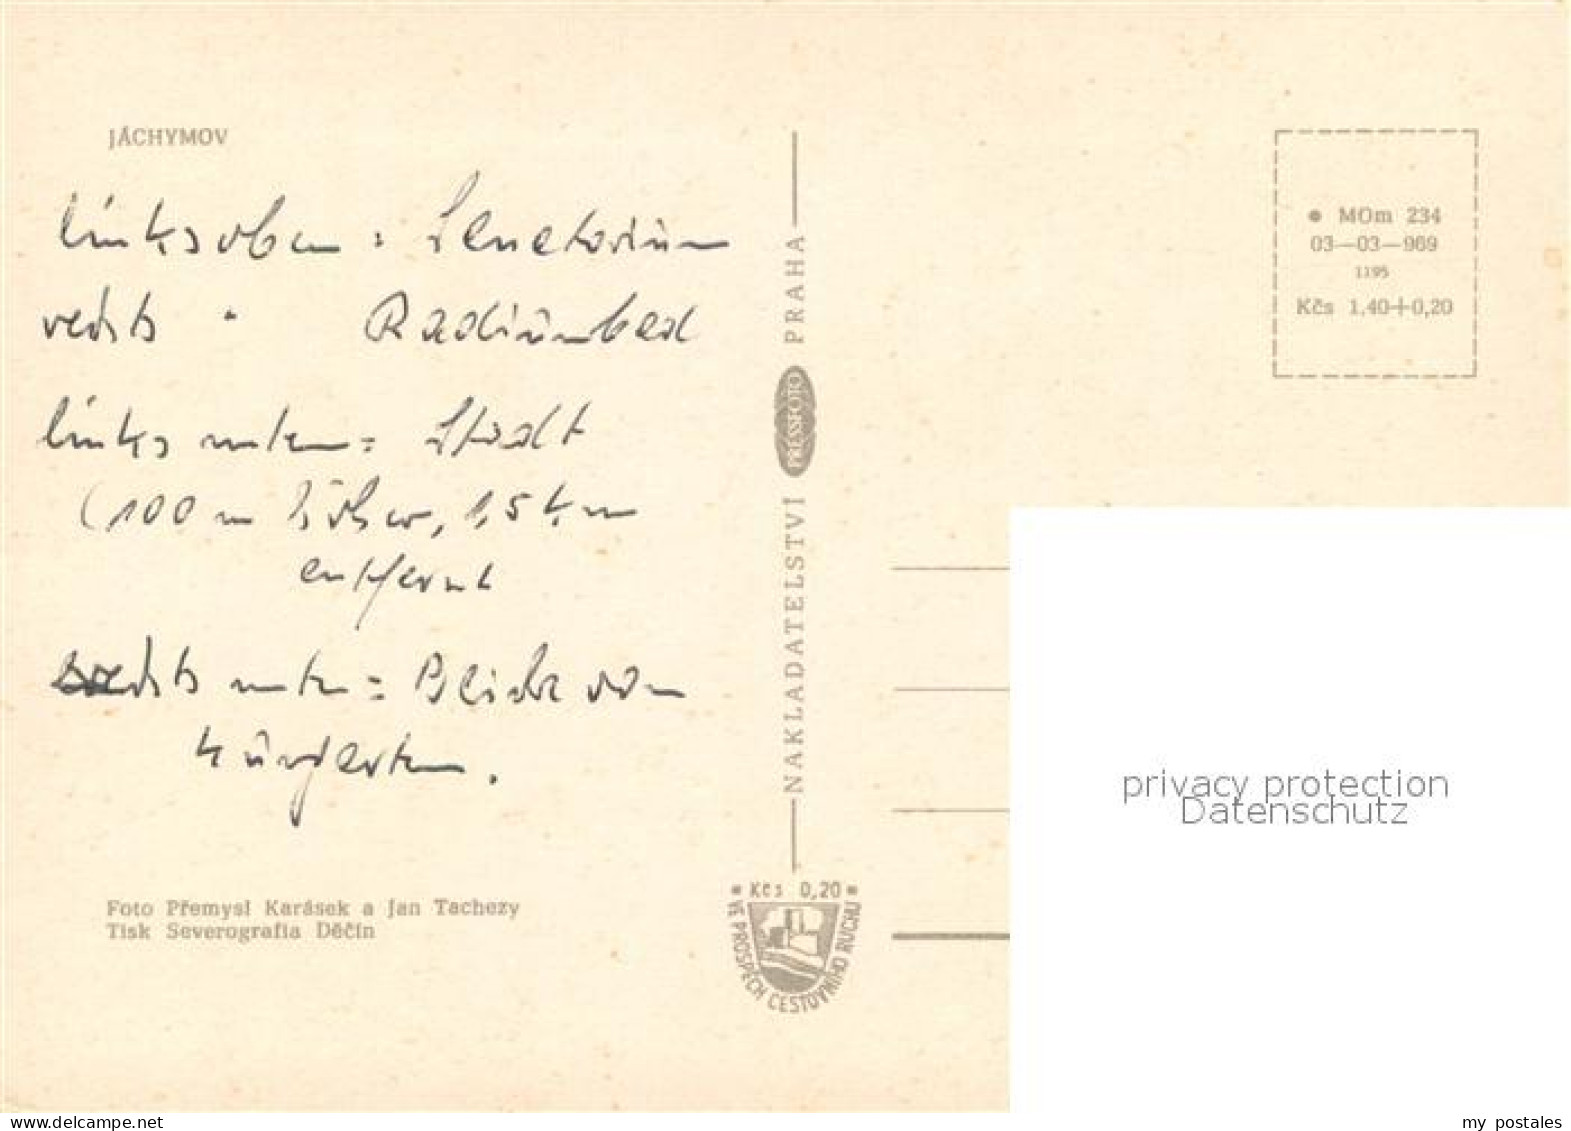 JÁCHYMOV
links oben : Sanatorium
rechts " Radiumbad
links unten : Stadt
(100 m höher, 1,5 km
entfernt
rechts unten : Blick vom
Kurgarten.
Foto Přemysl Karásek a Jan Tachezy
Tisk Severografia Děčín
NAKLADATELSTVÍ PRESSFOTO PRAHA
* Kčs 0,20 *
VE PROSPĚCH CESTOVNÍHO RUCHU
● MOm 234
03—03—969
1195
Kčs 1,40+0,20
privacy protection
Datenschutz
www.delcampe.net
my_postales